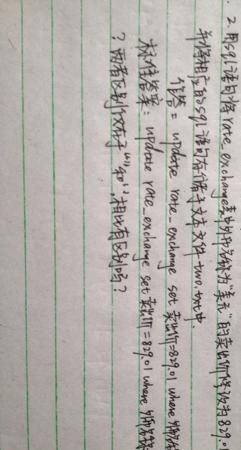 2. 用sql语句将rate_exchange表中外币名称为"美元"的卖出价修改为829.0
并将相应的sql语句存储于文本文件two.txt中
作答= update rate_exchange set 卖出价=829.01 where 外币名称
标准答案: update rate_exchange set 卖出价=829.01 where 外币名称
? 两者区别仅在于""和'',相比有区别吗?